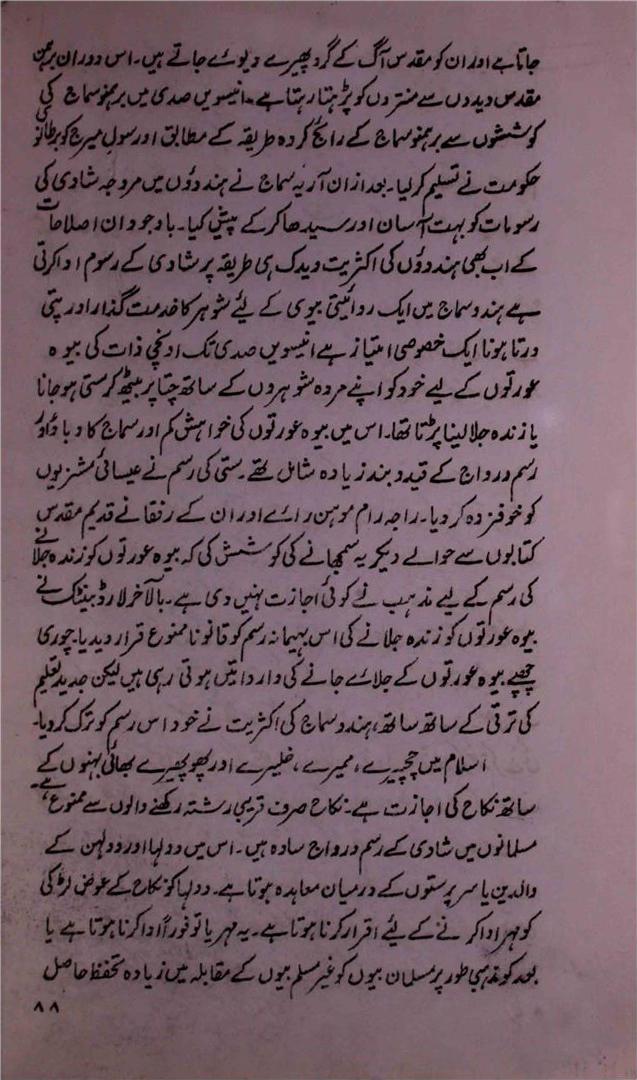 جاتا ہے اور ان کو مقدس آگ کے گرد پھیرے دیوئے جاتے ہیں۔ اس دوران برہمن
مقدس ویدوں سے منتروں کو پڑھتا رہتا ہے۔ انیسویں صدی میں برہمو سماج کی
کوششوں سے برہمو سماج کے رائج کردہ طریقہ کے مطابق اور سول میرج کو برطانوی
حکومت نے تسلیم کر لیا۔ بعد ازان آریہ سماج نے ہندوؤں میں مروجہ شادی کی
رسومات کو بہت آسان اور سیدھا کر کے پیش کیا۔ باوجود ان اصلاحات
کے اب بھی ہندوؤں کی اکثریت ویدک ہی طریقہ پر شادی کے رسوم ادا کرتی
ہے ہندو سماج میں ایک روائیتی بیوی کے لیے شوہر کا خدمت گذار اور پتی
ورتا ہونا ایک خصوصی امتیاز ہے انیسویں صدی تک اونچی ذات کی بیوہ
عورتوں کے لیے خود کو اپنے مردہ شوہروں کے ساتھ چتا پر بیٹھ کر ستی ہو جانا
یا زندہ جلا لینا پڑتا تھا۔ اس میں بیوہ عورتوں کی خواہش کم اور سماج کا دباؤ اور
رسم و رواج کے قید و بند زیادہ شامل تھے۔ ستی کی رسم نے عیسائی مشنریوں
کو خوفزدہ کر دیا۔ راجہ رام موہن رائے اور ان کے رفقا نے قدیم مقدس
کتابوں سے حوالے دیکر یہ سمجھانے کی کوشش کی کہ بیوہ عورتوں کو زندہ جلانے
کی رسم کے لیے مذہب نے کوئی اجازت نہیں دی ہے۔ بالآخر لارڈ بینٹک نے
بیوہ عورتوں کو زندہ جلانے کی اس بہیمانہ رسم کو قانوناً ممنوع قرار دیدیا۔ چوری
چھپے بیوہ عورتوں کے جلائے جانے کی وارداتیں ہوتی رہی ہیں لیکن جدید تعلیم
کی ترقی کے ساتھ ساتھ، ہندو سماج کی اکثریت نے خود اس رسم کو ترک کر دیا۔
اسلام میں چچیرے، ممیرے، خلیرے اور پھوپھیرے بھائی بہنوں کے
ساتھ نکاح کی اجازت ہے۔ نکاح صرف قریبی رشتہ رکھنے والوں سے ممنوع ہے۔
مسلمانوں میں شادی کے رسم و رواج سادہ ہیں۔ اس میں دولہا اور دولہن کے
والدین یا سرپرستوں کے درمیان معاہدہ ہوتا ہے۔ دولہا کو نکاح کے عوض لڑکی
کو مہر ادا کرنے کے لیئے اقرار کرنا ہوتا ہے۔ یہ مہر یا تو فوراً ادا کرنا ہوتا ہے یا
بعد کو مذہبی طور پر مسلمان بیوں کو غیر مسلم بیوں کے مقابلہ میں زیادہ تحفظ حاصل
۸۸